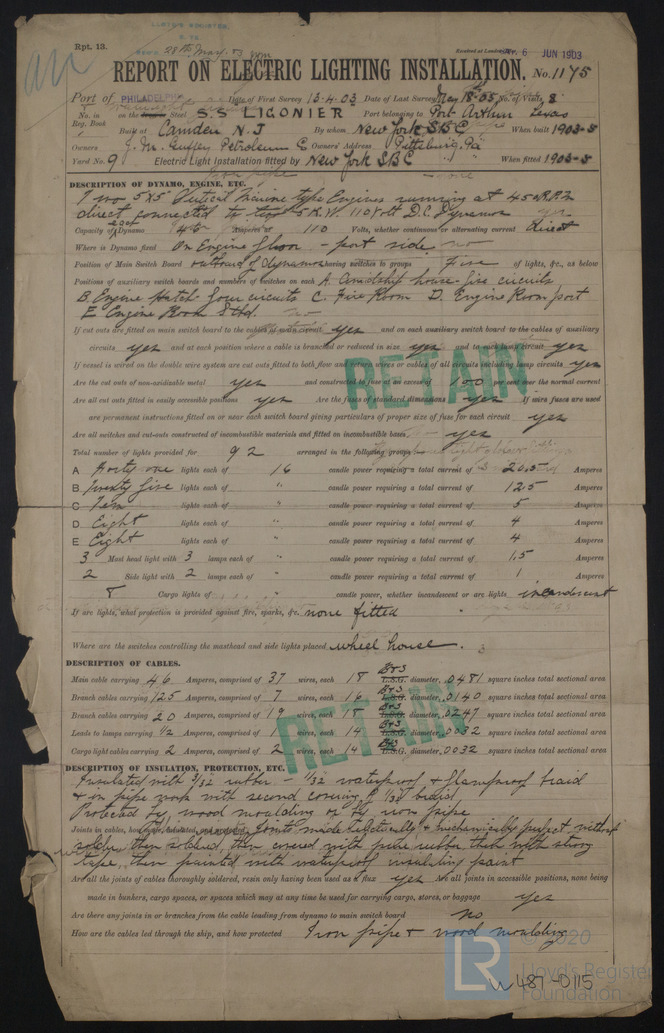 Rpt. 13.
28th May. 03
Received at London
6 JUN 1903
REPORT ON ELECTRIC LIGHTING INSTALLATION. No. 1175
Port of PHILADELPHIA Date of First Survey 13.4.03 Date of Last Survey May 18.03 No. of Visits 8
No. in Reg. Book on the Steel S.S LIGONIER Port belonging to Port Arthur Texas
Built at Camden N.J By whom New York S.B.C When built 1903-5
Owners J. M. Guffey Petroleum C Owners' Address Pittsburg. Pa
Yard No. 9 Electric Light Installation fitted by New York S.B.C When fitted 1903-5
DESCRIPTION OF DYNAMO, ENGINE, ETC.
Two 5x5 Vertical Marine type Engines running at 450 R.P.M
direct connected to two 5 K.W. 110 Volt D.C. Dynamos
Capacity of Dynamo 45 Amperes at 110 Volts, whether continuous or alternating current direct
Where is Dynamo fixed On Engine floor - port side
Position of Main Switch Board outboard of dynamos having switches to groups Five of lights, &c., as below
Positions of auxiliary switch boards and numbers of switches on each A. Amidship house - five circuits
B. Engine Hatch four circuits C. Fire Room D. Engine Room port
E Engine Room Stbd.
If cut outs are fitted on main switch board to the cables of main circuit yes and on each auxiliary switch board to the cables of auxiliary
circuits yes and at each position where a cable is branched or reduced in size yes and to each lamp circuit yes
If vessel is wired on the double wire system are cut outs fitted to both flow and return wires or cables of all circuits including lamp circuits yes
Are the cut outs of non-oxidizable metal yes and constructed to fuse at an excess of 100 per cent over the normal current
Are all cut outs fitted in easily accessible positions yes Are the fuses of standard dimensions yes If wire fuses are used
are permanent instructions fitted on or near each switch board giving particulars of proper size of fuse for each circuit yes
Are all switches and cut-outs constructed of incombustible materials and fitted on incombustible bases yes
Total number of lights provided for 92 arranged in the following groups
A Forty one lights each of 16 candle power requiring a total current of 20.5 Amperes
B Twenty five lights each of " candle power requiring a total current of 12.5 Amperes
C Ten lights each of " candle power requiring a total current of 5 Amperes
D Eight lights each of " candle power requiring a total current of 4 Amperes
E Eight lights each of " candle power requiring a total current of 4 Amperes
3 Mast head light with 3 lamps each of " candle power requiring a total current of 1.5 Amperes
2 Side light with 2 lamps each of " candle power requiring a total current of 1 Amperes
8 Cargo lights of candle power, whether incandescent or arc lights incandescent
If arc lights, what protection is provided against fire, sparks, &c. none fitted
Where are the switches controlling the masthead and side lights placed wheel house.
DESCRIPTION OF CABLES.
Main cable carrying 46 Amperes, comprised of 37 wires, each 18 B+S L.S.G. diameter, .0481 square inches total sectional area
Branch cables carrying 12.5 Amperes, comprised of 7 wires, each 16 B+S L.S.G. diameter, .0140 square inches total sectional area
Branch cables carrying 20 Amperes, comprised of 19 wires, each 18 B+S L.S.G. diameter, .0247 square inches total sectional area
Leads to lamps carrying 1/2 Amperes, comprised of 1 wires, each 14 B+S L.S.G. diameter, .0032 square inches total sectional area
Cargo light cables carrying 2 Amperes, comprised of 2 wires, each 14 B+S L.S.G. diameter, .0032 square inches total sectional area
DESCRIPTION OF INSULATION, PROTECTION, ETC.
Insulated with 3/32 rubber - 1/32 waterproof & flameproof braid
& in pipe work with second covering of 1/32 braid
Protected by wood moulding or by iron pipe
Joints in cables, how made, insulated, and protected joints made electrically & mechanically perfect without
solder then soldered, then covered with pure rubber, then with strong
tape, then painted with waterproof insulating paint
Are all the joints of cables thoroughly soldered, resin only having been used as a flux yes Are all joints in accessible positions, none being
made in bunkers, cargo spaces, or spaces which may at any time be used for carrying cargo, stores, or baggage yes
Are there any joints in or branches from the cable leading from dynamo to main switch board no
How are the cables led through the ship, and how protected Iron pipe & wood moulding
RETAIN
RETAIN
© 2020
Lloyd's Register
Foundation
W487-0115